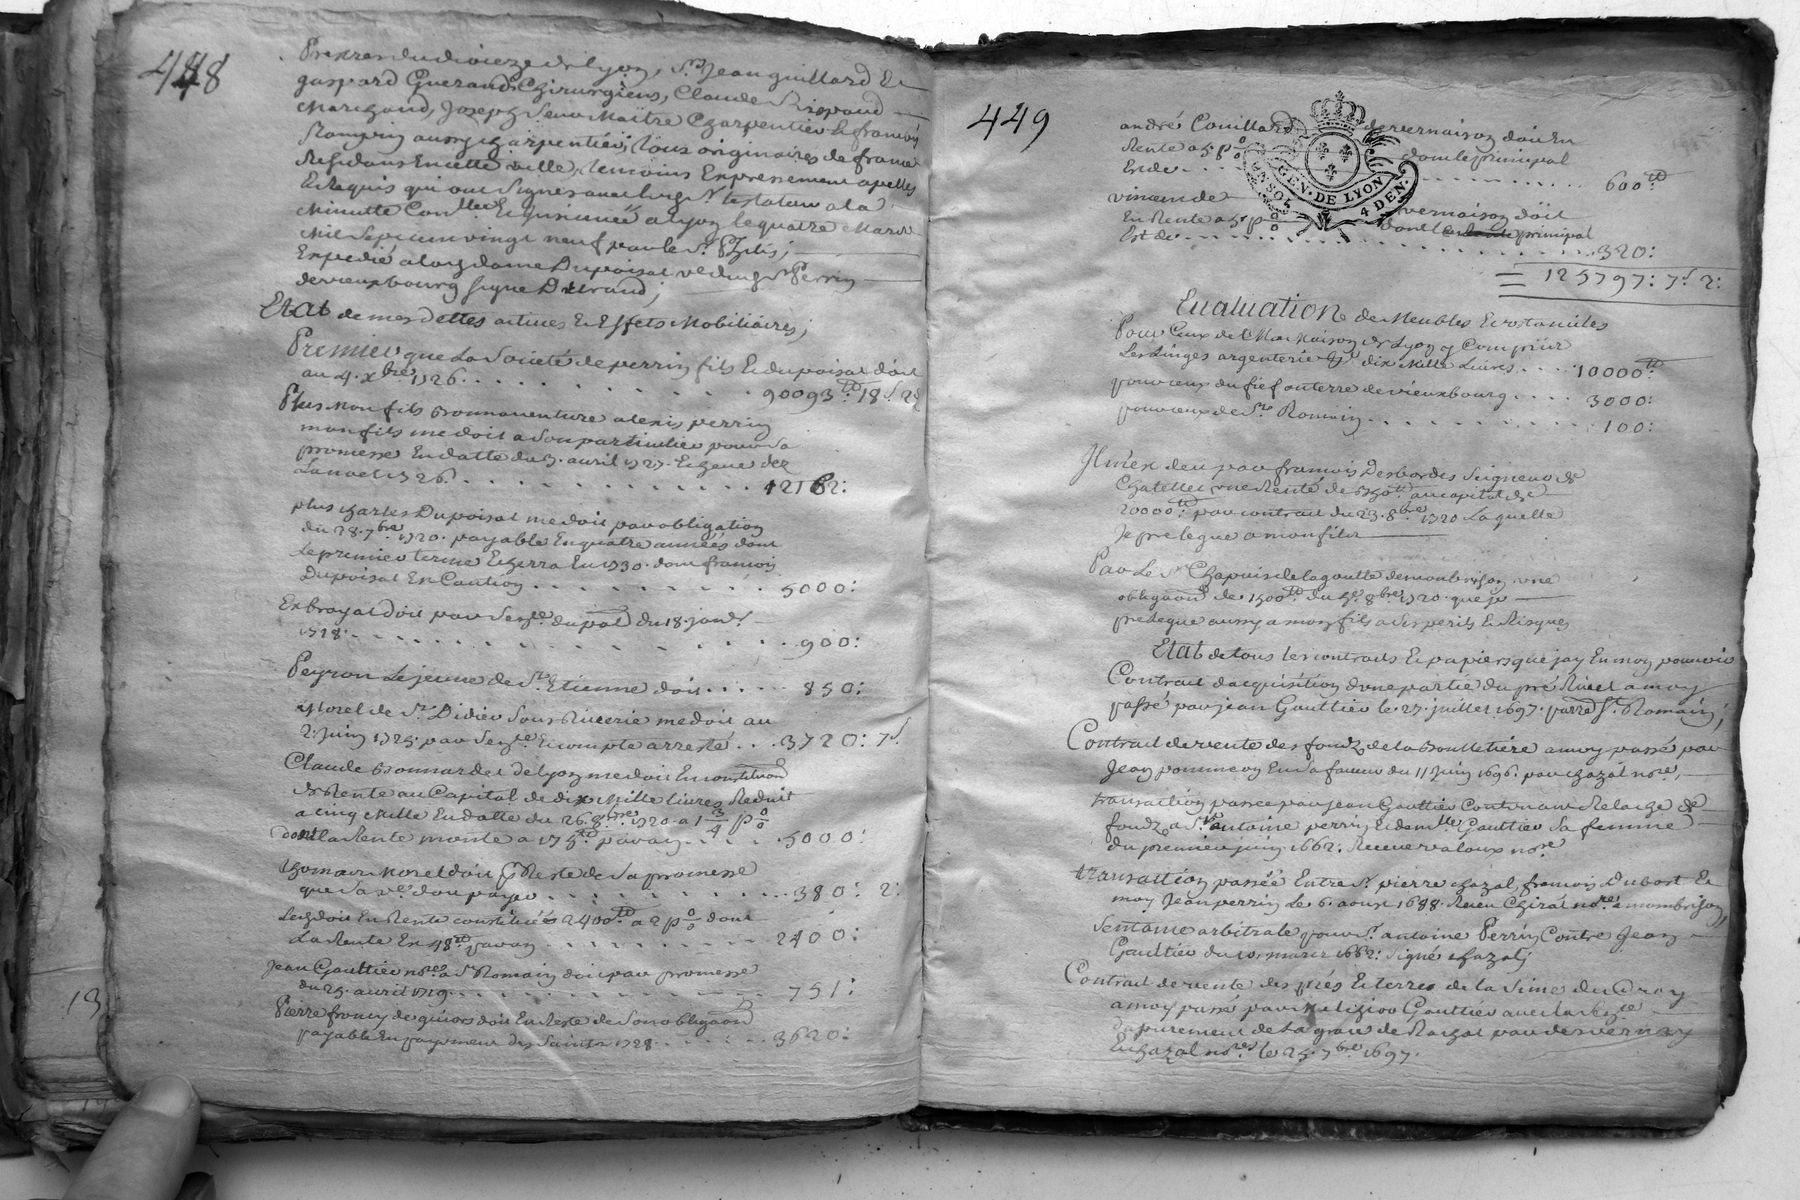 448
Prestres du dioceze de lyon, Sr. Jean guillard Et
gaspard Guerand Chirurgiens, Claude
Marchand, Joseph Maitre Charpentier & francois
aussy charpentier, tous originaires de france
Residans En cette ville, temoins Expressement apelles
Et Requis qui ont signés avec led. Sr. testateur a la
Minutte Conllee. a Lyon le quatre Mars
Mil Sept cent vingt neuf par le Sr.
Expedié a lad. dame Dupoisat ve. dud. Sr. Perrin
de vieuxbourg signe Durand;
Etat de mes Dettes actives & Effets Mobiliaires;
Premier que La Societé de perrin fils & dupoisat doit
au 4. xbre. 1726. . . . . . . . 90093 tt: 18 s. 2 d
Plus Mon fils Bonnaventure alexis perrin
mon fils me doit a Son particulier par Sa
promesse En datte du 3. avril 1727. Echeue dez
La noel 1726. . . . . . . . . . . 12162:
plus charles Dupoisat me doit par obligation
du 28. 7bre. 1720. payable En quatre années dont
Le premier terme Echerra En 1730. dont francois
Dupoisat Est Caution . . . . . . . . . 5000:
Exbrayat doit par Sentce. du pal. du 18. janv.
1728. . . . . . . . . . . . 900:
Peyron Le jeune de St. Etienne doit . . . . . 850:
Morel de St. Didier Sous Riverie me doit au
2. juin 1725. par Sentce. & compte arresté . . . 3720: 7 s.
Claude Bonnardet de Lyon me doit En constitution
de Rente au Capital de dix Mille livres Reduit
a cinq Mille En datte du 26. 8bre. 1720. a 1 3/4 p o/o
dont La Rente monte a 175 tt par an . . . . . 5000:
thomas Morel doit pr Reste de Sa promesse
que Sa ve. doit payer . . . . . . . . . 380: 2:
Led. doit En Rente constituée 2400 tt a 2 p o/o dont
La Rente Est 48 tt par an . . . . . . . . 2400:
Jean Gaultier nore. a St. Romain doit par promesse
du 25. avril 1719. . . . . . . . . . . 751:
Pierre francy de givors doit En Reste de Son obligaon
payable En payement des Saints 1728. . . . . . 3620:
449
andré Couillard de vernaison doit En
Rente a 5. p o/o dont le principal
Est de . . . . . . . . . 600 tt.
vincent de vernaison doit
En Rente a 5. p o/o dont le principal
Est de . . . . . . . . . . . . 320:
= 125797: 7 s. 2:
GEN. DE LYON
4 DEN.
Evaluation de Meubles & ostancites
Pour Ceux de Ma Maison de Lyon y Compris
Les Linges argenterie &c. dix Mille Livres . . . . 10000 tt.
pour ceux du fief ou terre de vieuxbourg . . . . 3000:
pour ceux de St. Romain . . . . . . . . . 100:
Il m'est deu par francois Desbordes Seigneur du
Chatellet une Rente de au capital de
20000 tt. par contrat du 23. 8bre. 1720 Laquelle
Je prelegue a mon fils
Par Le Sr. Chapuis de la goutte de monbrison une
obligaon de 1500 tt. du 5e. 8bre. 1720. que je
prelegue aussy a mon fils a Ses perils & Risques
Etat de tous les contrats & papiers que jay En mon pouvoir
Contrat dacquisition dune partie du pré a moy
passé par jean Gaulthier le 27. juillet 1697. parre. St. Romain;
Contrait de vente des fondz de la Boulletiere a moy passé par
Jean pommeon Et Sa femme du 11 juin 1696. par chazal nore.
transaction passée par jean Gaulthier Contenant Relache de
fondz a Sr. antoine perrin & demlle. Gaulthier Sa femme
du premier juin 1662. Receue valoux nore.
transaction passée Entre Sr. pierre chazal, francois Dubost Et
moy Jean perrin Le 6. aoust 1688. Receu Chirat nore. a monbrison,
Sentance arbitrale pour Sr. antoine Perrin Contre Jean
Gaultier du 10. mars 1662: Signé Chazal;
Contrait de vente des prés & terres de la Cray
a moy passé par Gaulthier avec la
de la grace de Rachat par desvernay
& chazal nores. le 25. 7bre. 1697.
13